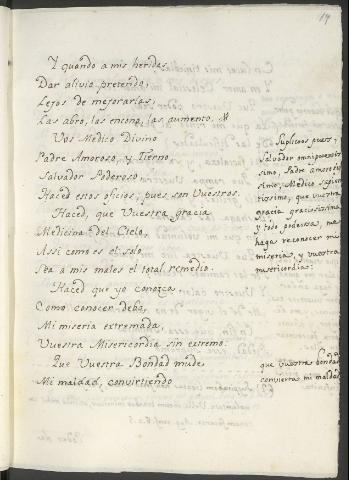 14
Y quando a mis heridas
Dar alivio pretendo,
Lejos de mejorarlas,
Las abro, las encono, las aumento.
Vos Medico Divino
Padre Amoroso, y Tierno
Salvador Poderoso
Haced estos oficios, pues son Vuestros.
Haced, que Vuestra gracia
Medicina del Cielo,
Assi como es el solo
Sea a mis males el total remedio.
Haced que yo conozca
Como conocer debo,
Mi miseria extremada,
Vuestra Misericordia sin extremo:
Que Vuestra Bondad mude
Mi maldad, convirtiendo
Suplicoos pues,
Salvador omnipotentis
simo, Padre amorosis
simo, Medico
que vuestra
gracia graciosissima
y todo poderosa, me
haga reconocer mi
miseria, y vuestra
misericordia:
que vuestra bondad
convierta mi maldad